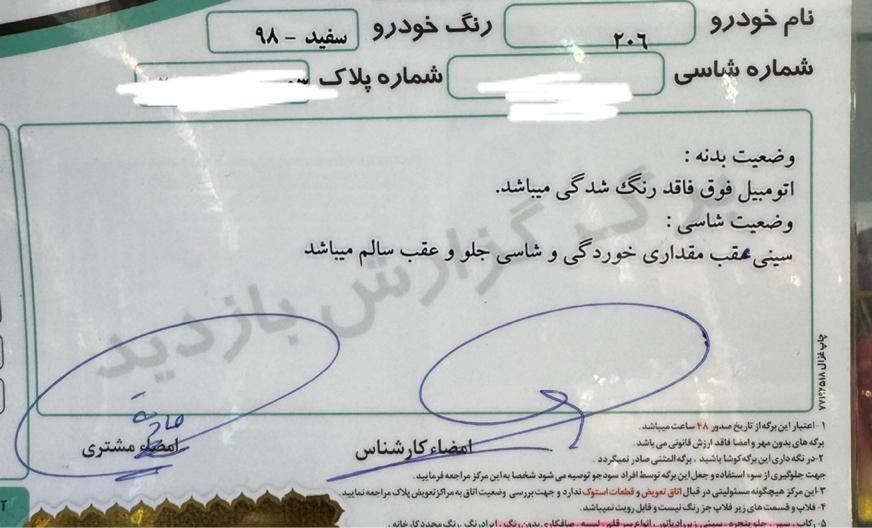 نام خودرو ۲۰۶ رنگ خودرو سفید - ۹۸
شماره شاسی شماره پلاک
وضعیت بدنه :
اتومبیل فوق فاقد رنگ شدگی میباشد.
وضعیت شاسی :
سینی عقب مقداری خوردگی و شاسی جلو و عقب سالم میباشد
برگ گزارش بازدید
امضاء کارشناس امضاء مشتری
چاپ غزال
۱- اعتبار این برگه از تاریخ صدور ۴۸ ساعت میباشد.
برگه های بدون مهر و امضا فاقد ارزش قانونی می باشد.
۲- در نگه داری این برگه کوشا باشید ، برگه المثنی صادر نمیگردد
جهت جلوگیری از سوء استفاده و جعل این برگه توسط افراد سودجو توصیه می شود شخصا به این مرکز مراجعه فرمایید.
۳- این مرکز هیچگونه مسئولیتی در قبال اتاق تعویض و قطعات استوک ندارد و جهت بررسی وضعیت اتاق به مراکز تعویض پلاک مراجعه نمایید.
۴- قلاپ و قسمت های زیر قلاپ جز رنگ نیست و قابل رویت نمیباشد.